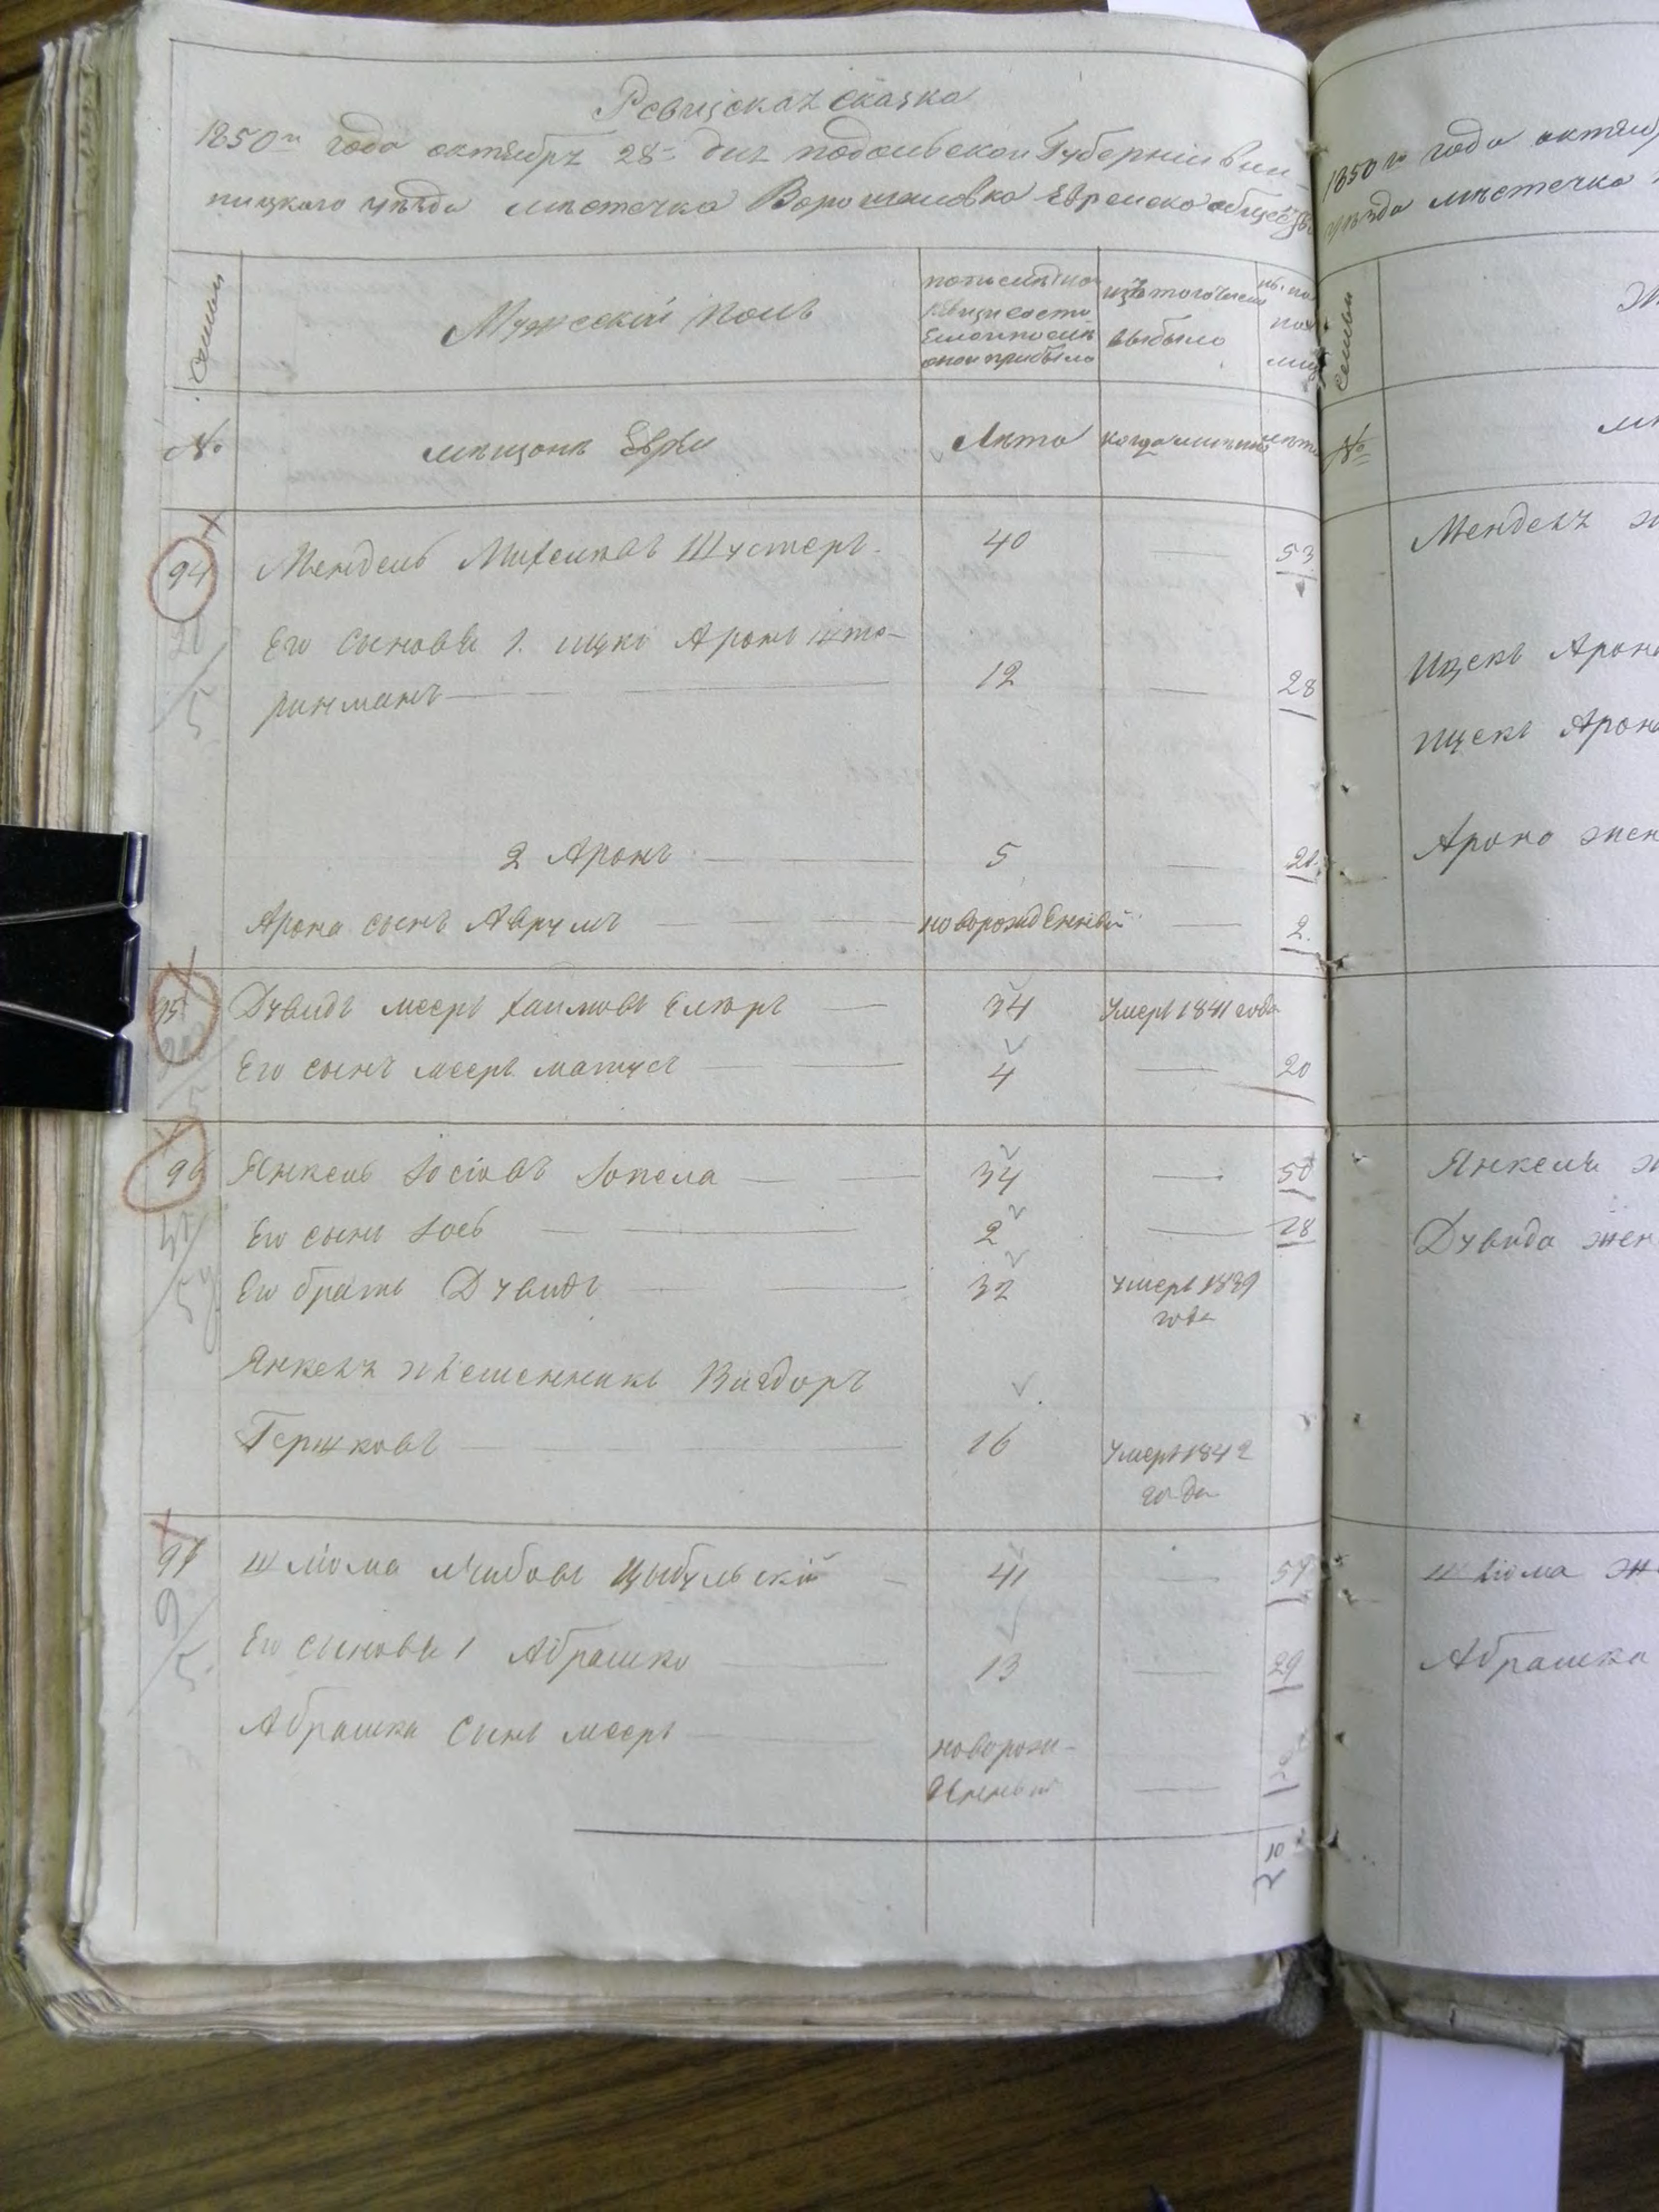 Ревизская сказка
1850го года октября 28= дня подольской Губерніи вин-
ницкаго уѣзда мѣстечка Ворошиловка Еврейско общес
семьи
Мужескій полъ
по последной
ревизіи состо
яло и после
оной прибыло
изъ того числа
выбыло
№
мѣщанъ Евреи
Лѣта
когда именно
лѣта
94
Мендель Михелевъ Шустеръ
40
53
Его сыновья 1. ицко Аронъ што-
ринманъ
12
28
2 Аронъ
5
21
Арона сынъ Аврумъ
новорожденный
2
95
Дувидъ мееръ хаимовъ
34
умеръ 1841 года
Его сынъ мееръ матусъ
4
20
96
Янкель Іосіовъ
34
50
Его сынъ Іось
2
18
Его братъ Дувидъ
32
умеръ 1839
года
Янкеля племенникъ Вигдоръ
Гершковъ
16
умеръ 1842
года
97
шліома лейбовъ Цыбульскій
41
57
Его сыновья 1 Абрашко
13
29
Абрашки сынъ мееръ
новорож-
денный
10
1850го года октяб
уѣзда мѣстечка
семьи
№
Мендель
Ицекъ Арон
ицекъ Арон
Арона жен
Янкеля
Дувида жен
шліома ж
Абрашка